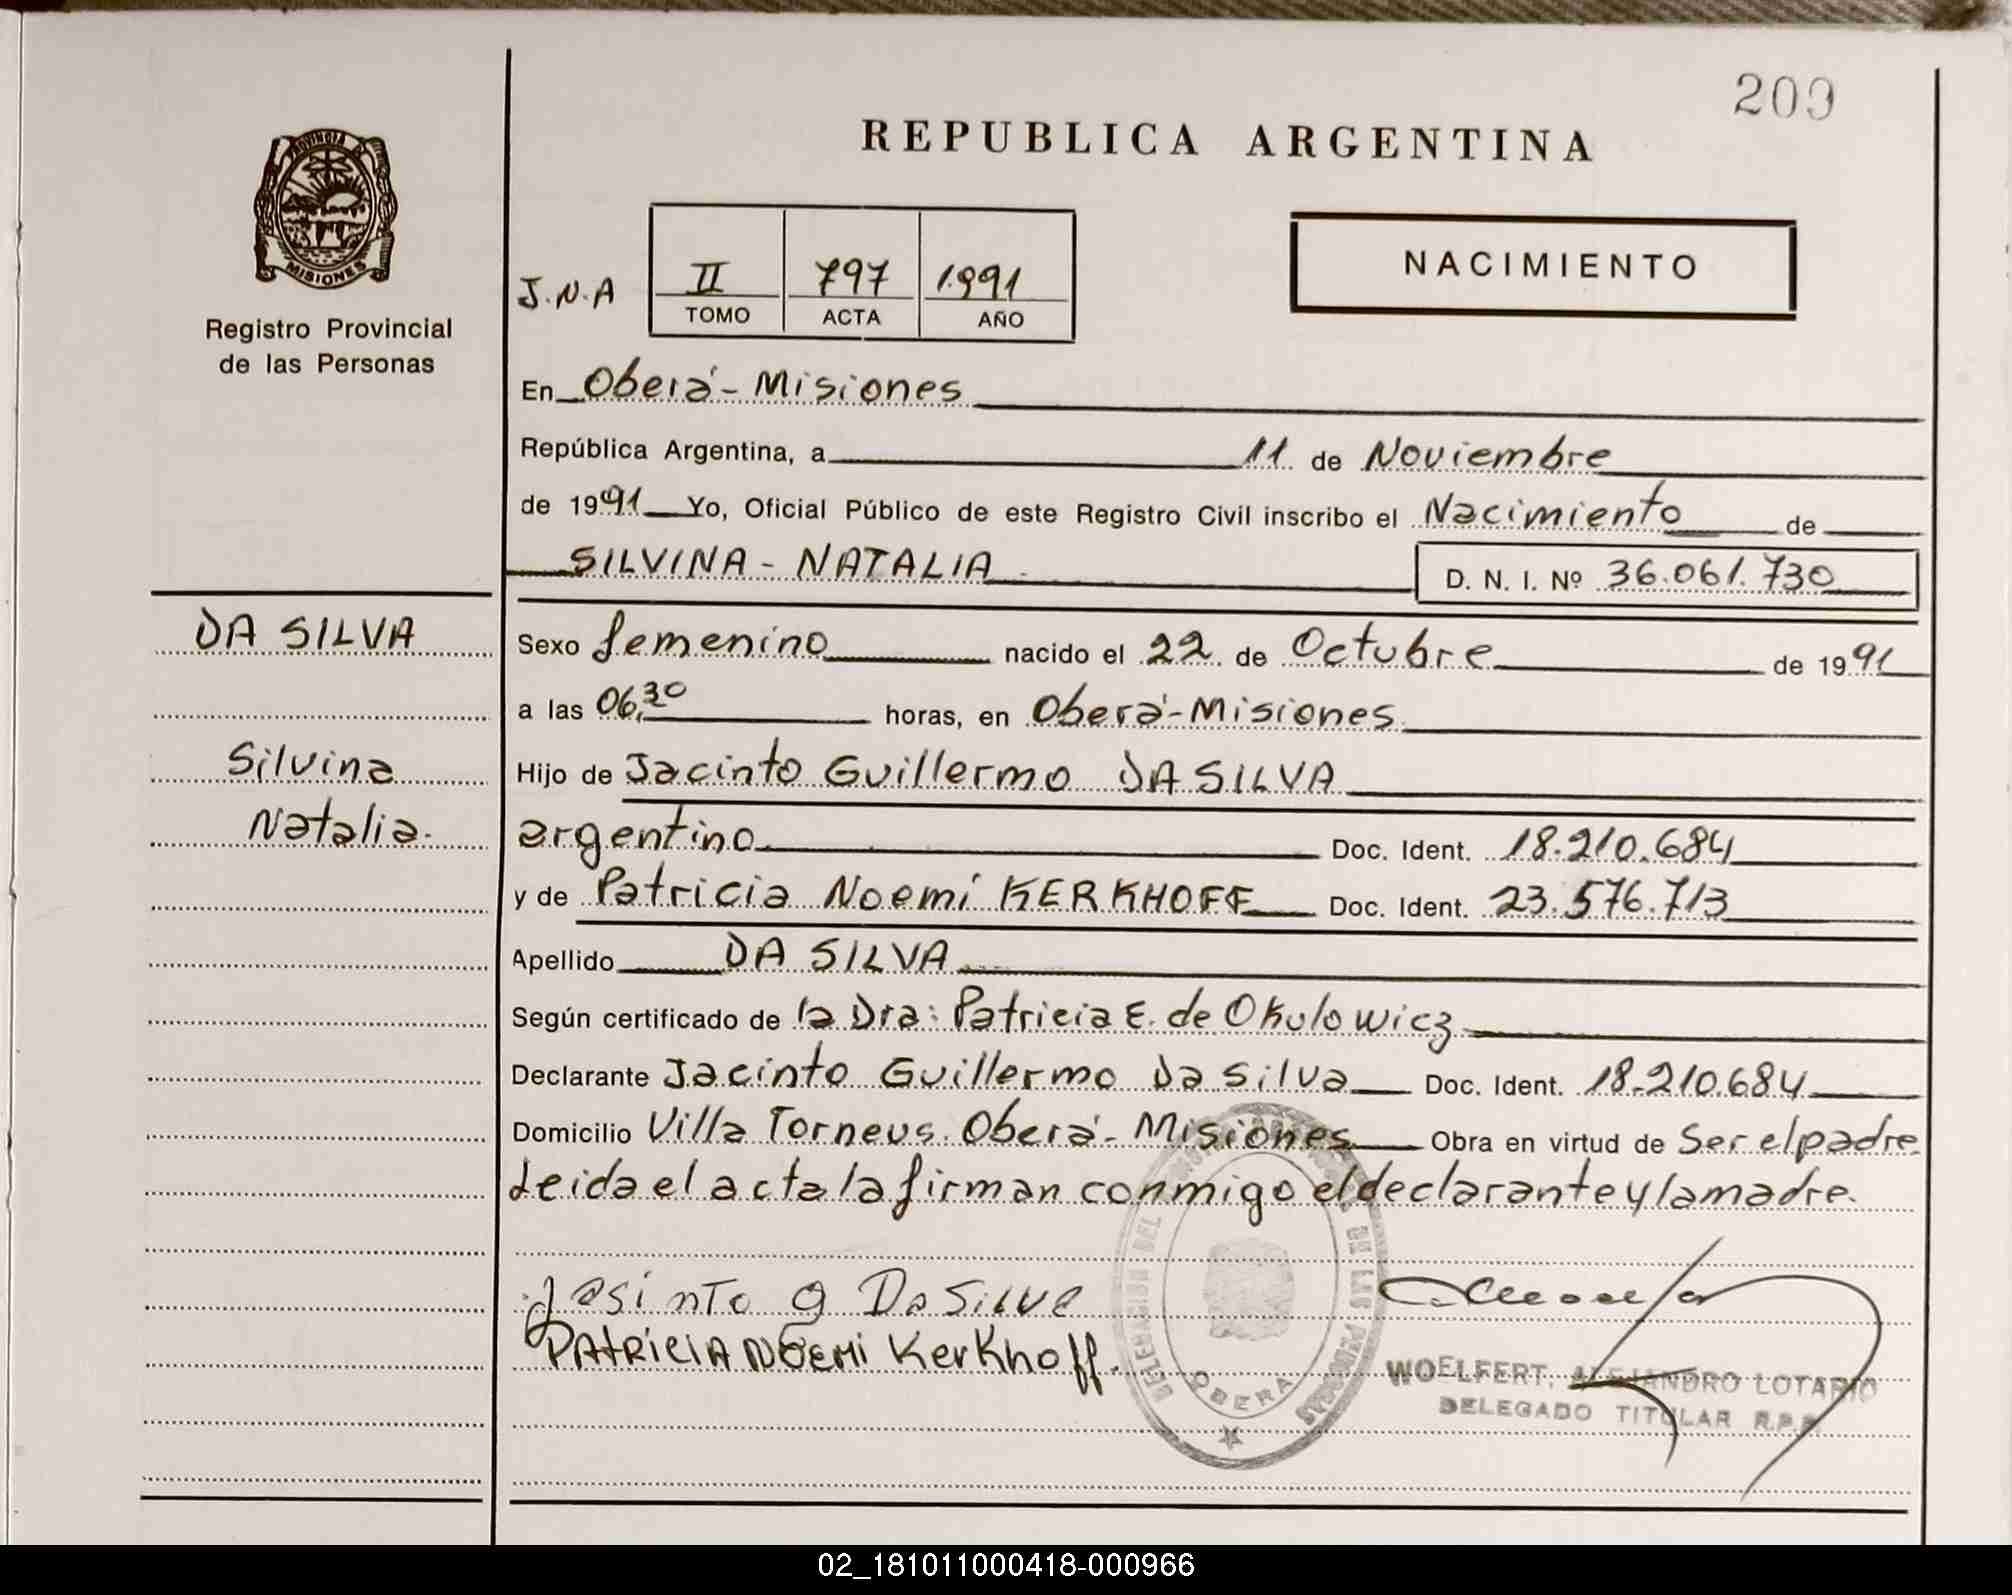 209
REPUBLICA ARGENTINA
PROVINCIA DE
MISIONES
Registro Provincial
de las Personas
NACIMIENTO
J.N.A
II 797 1.991
TOMO ACTA AÑO
En Oberá - Misiones
República Argentina, a 11 de Noviembre
de 1991 Yo, Oficial Público de este Registro Civil inscribo el Nacimiento de
SILVINA - NATALIA D. N. I. Nº 36.061.730
DA SILVA
Silvina
Natalia.
Sexo femenino nacido el 22 de Octubre de 1991
a las 06,30 horas, en Oberá - Misiones
Hijo de Jacinto Guillermo DA SILVA
argentino Doc. Ident. 18.210.684
y de Patricia Noemí KERKHOFF Doc. Ident. 23.576.713
Apellido DA SILVA
Según certificado de la Dra: Patricia E. de Okulowicz
Declarante Jacinto Guillermo Da Silva Doc. Ident. 18.210.684
Domicilio Villa Torneus. Oberá - Misiones Obra en virtud de Ser el padre.
Leida el acta la firman conmigo el declarante y la madre.
Jasinto g Da Silva
PATRICIA NOEMI KerKhoff.
DELEGACION DEL DE LAS PERSONAS
OBERA
WOELFERT, ALEJANDRO LOTARIO
DELEGADO TITULAR R.P.P.
02_181011000418-000966